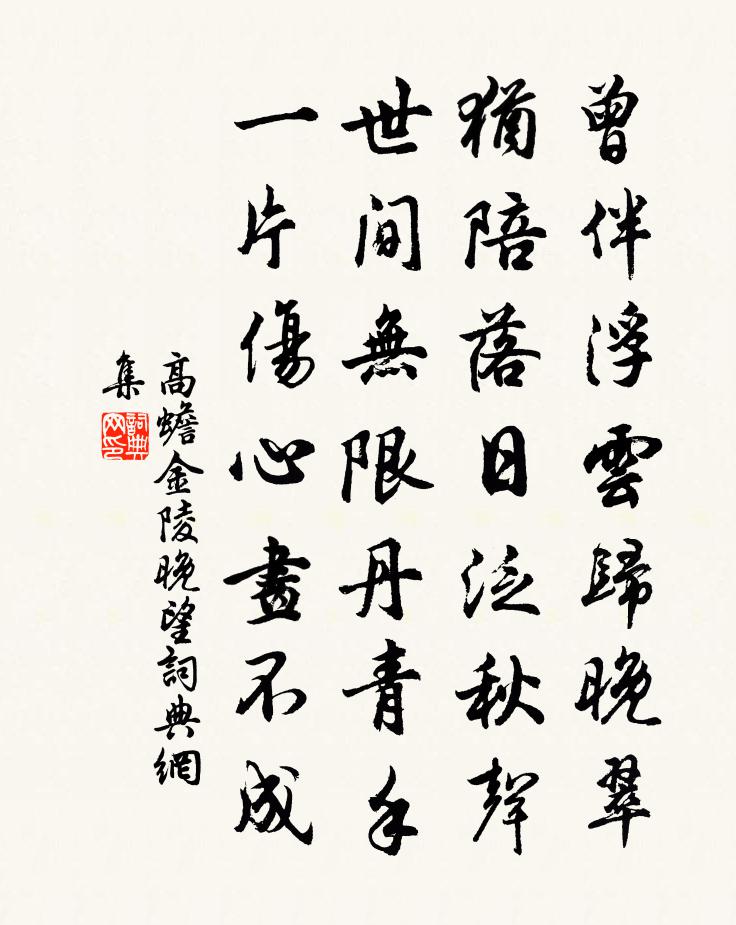 曾伴浮雲歸晚翠
猶陪落日泛秋聲
世间無限丹青手
一片傷心畫不成
高蟾金陵晚望詞典網
集
詞典網印